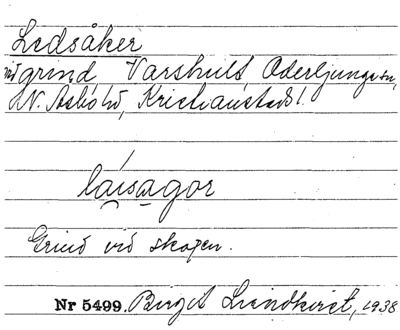 Ledsåker
vid grind Varshult Oderljunga sn,
N. Åsbo hd, Kristianstads l.
låisagor
Grind vid skogen.
Nr 5499. Birgit Lundkvist, 1938